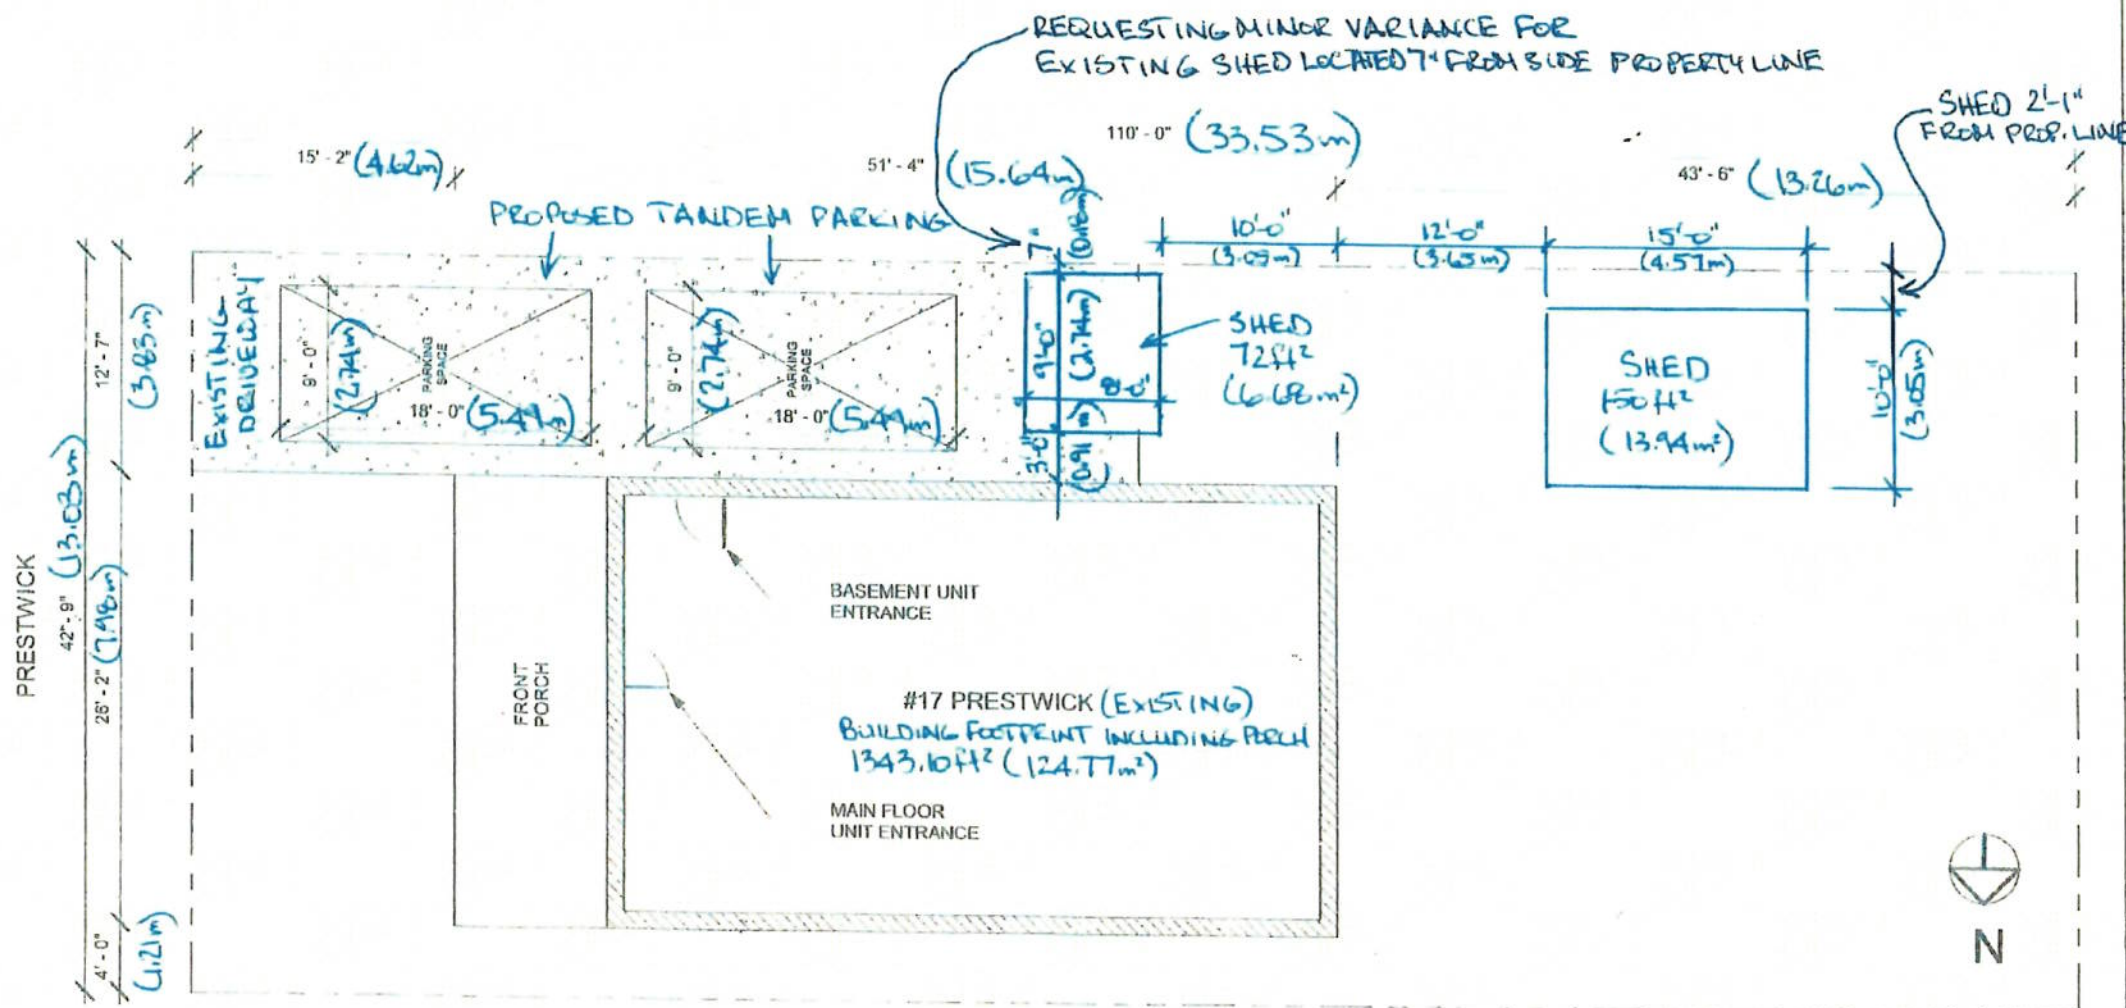 REQUESTING MINOR VARIANCE FOR
EXISTING SHED LOCATED 7" FROM SIDE PROPERTY LINE
SHED 2'-1"
FROM PROP. LINE
110' - 0" (33.53m)
15' - 2" (4.62m)
51' - 4" (15.64m)
43' - 6" (13.26m)
PROPOSED TANDEM PARKING
7"
(0.18m)
10'-0"
(3.05m)
12'-0"
(3.65m)
15'-0"
(4.57m)
EXISTING
DRIVEWAY
9' - 0"
(2.74m)
PARKING
SPACE
18' - 0" (5.49m)
9' - 0"
(2.74m)
PARKING
SPACE
18' - 0" (5.49m)
9'-0"
(2.74m)
8'-0"
3'-0"
(0.91m)
SHED
72ft²
(6.68m²)
SHED
150ft²
(13.94m²)
10'-0"
(3.05m)
12' - 7"
(3.83m)
PRESTWICK
42' - 9" (13.03m)
26' - 2" (7.98m)
4' - 0"
(1.21m)
FRONT
PORCH
BASEMENT UNIT
ENTRANCE
#17 PRESTWICK (EXISTING)
BUILDING FOOTPRINT INCLUDING PORCH
1343.10ft² (124.77m²)
MAIN FLOOR
UNIT ENTRANCE
N